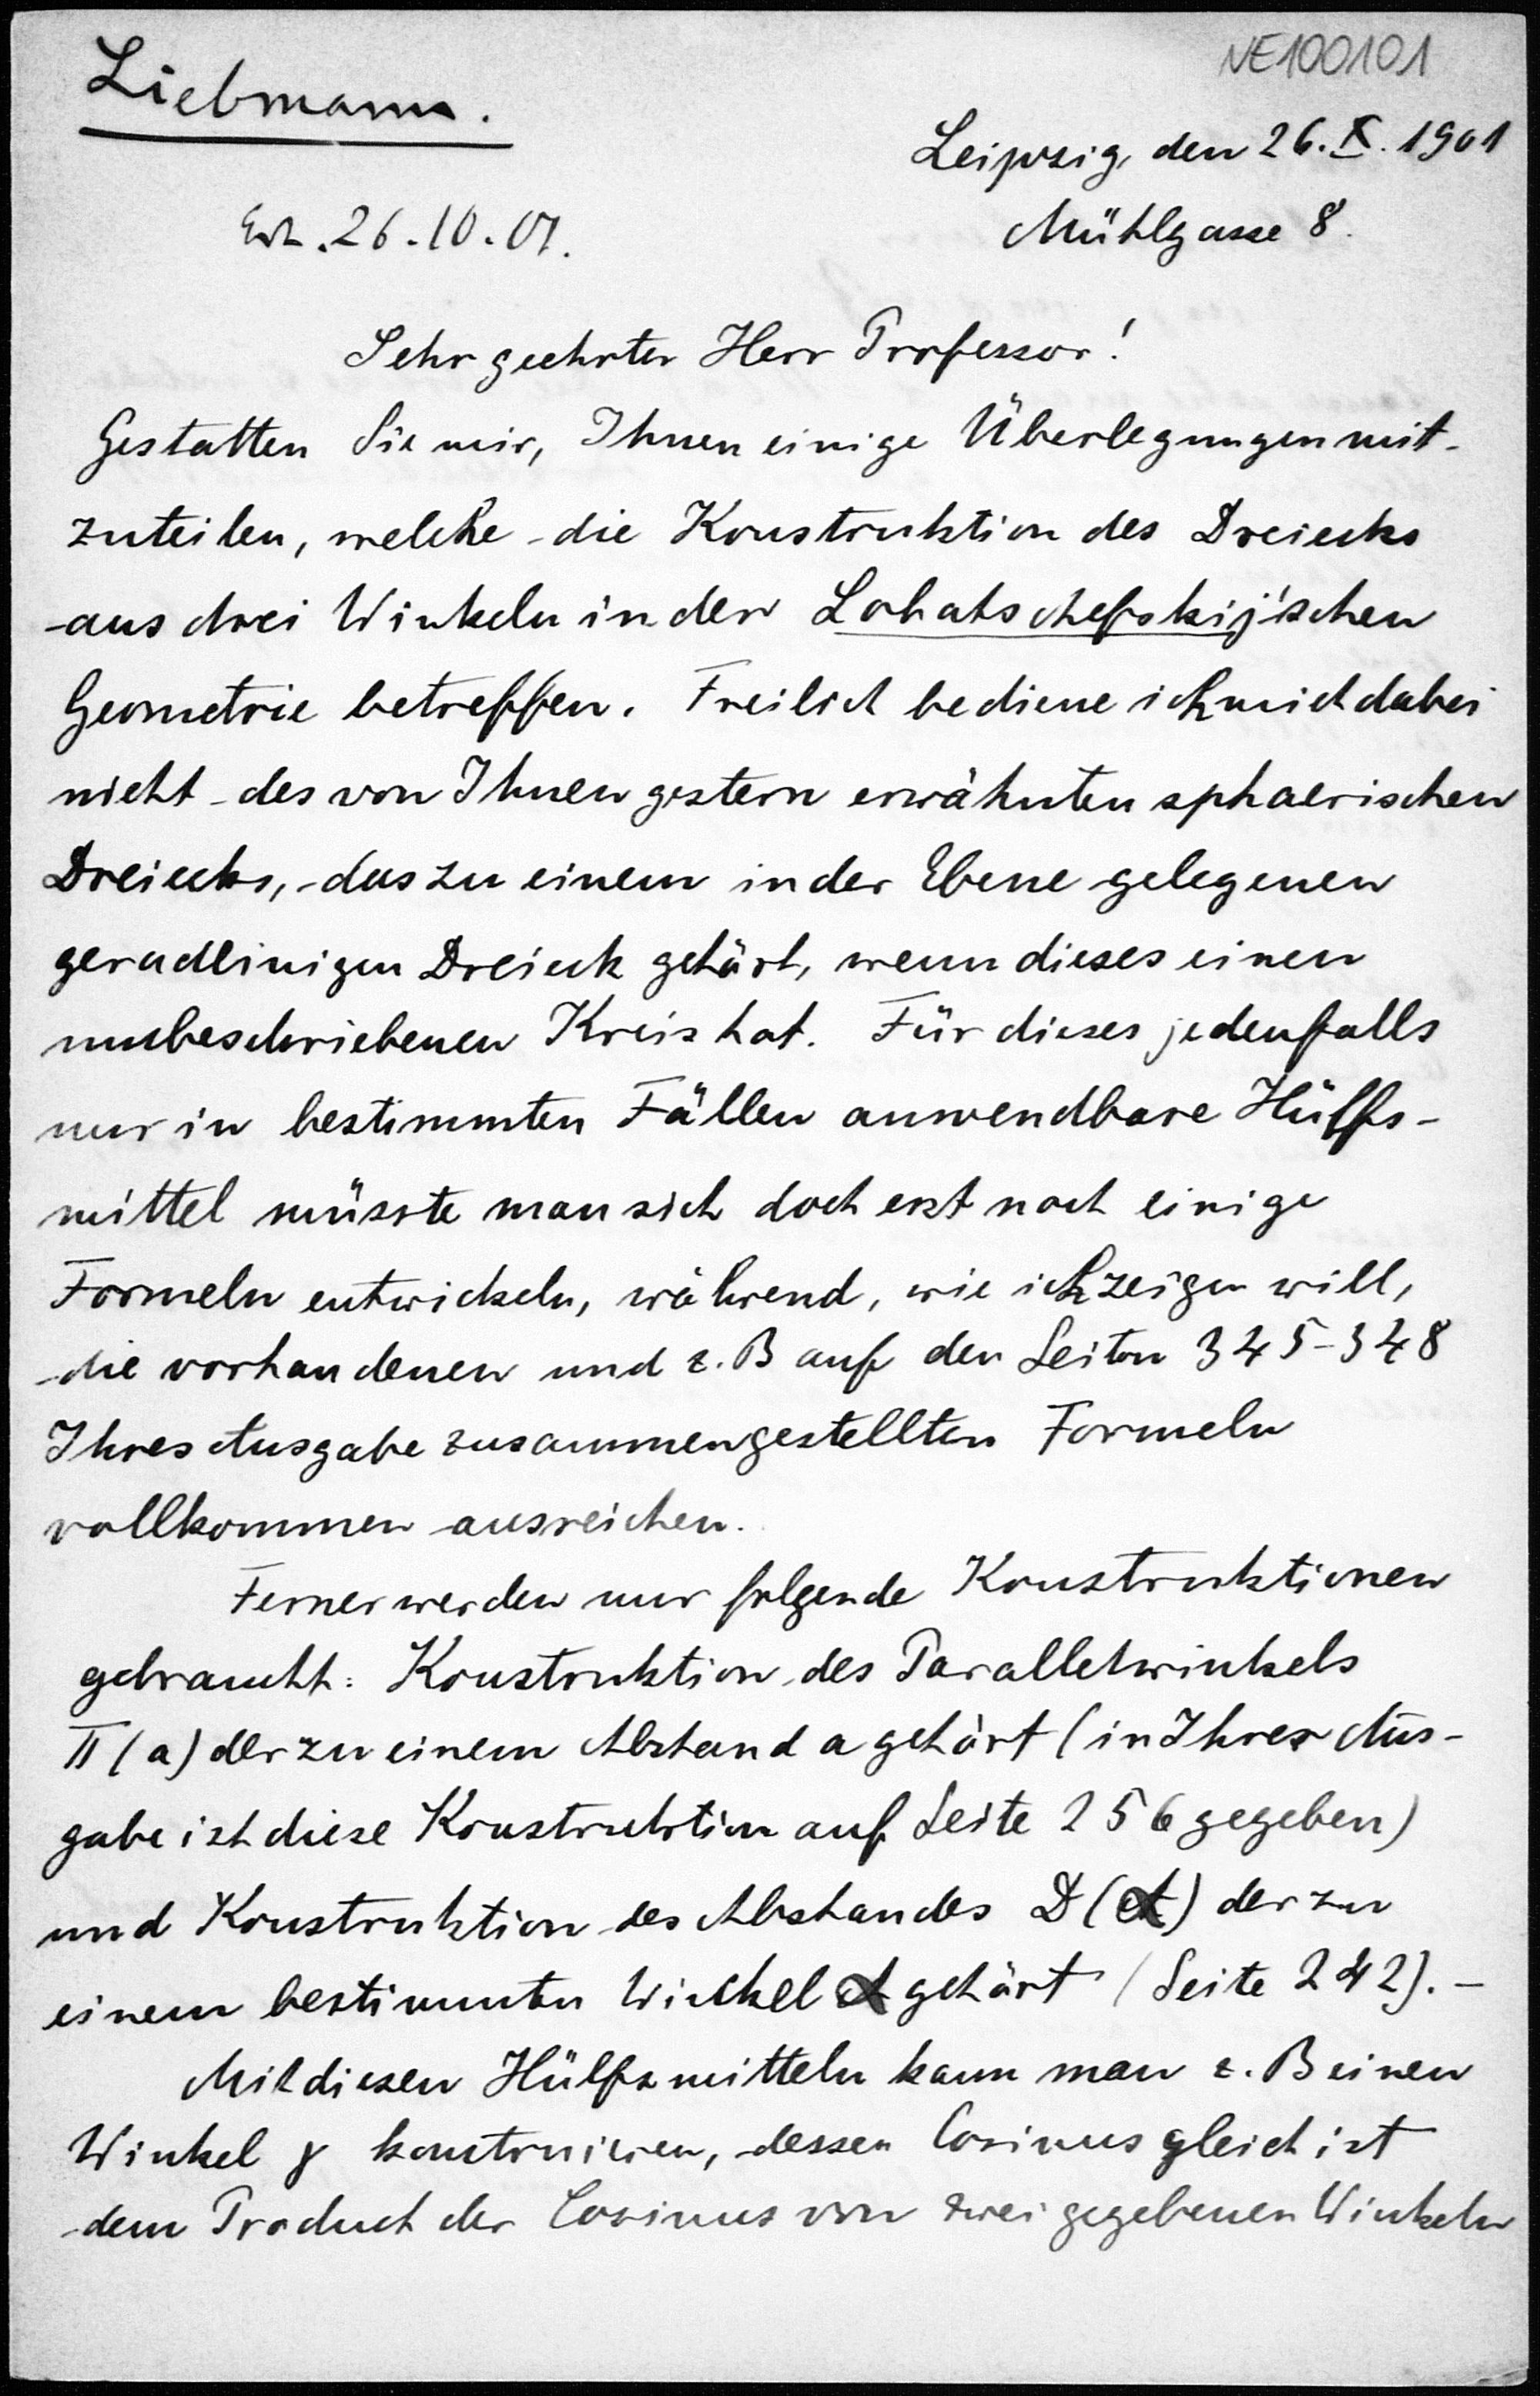 NE100101
Liebmann.
Leipzig, den 26. X. 1901
Mühlgasse 8.
Erh. 26.10.01.
Sehr geehrter Herr Professor!
Gestatten Sie mir, Ihnen einige Überlegungen mit-
zuteilen, welche die Konstruktion des Dreiecks
aus drei Winkeln in der Lobatschefskij'schen
Geometrie betreffen. Freilich bediene ich mich dabei
nicht des von Ihnen gestern erwähnten sphaerischen
Dreiecks, das zu einem in der Ebene gelegenen
geradlinigen Dreieck gehört, wenn dieses einen
umbeschriebenen Kreis hat. Für dieses jedenfalls
nur in bestimmten Fällen anwendbare Hülfs-
mittel müsste man sich doch erst noch einige
Formeln entwickeln, während, wie ich zeigen will,
die vorhandenen und z. B auf den Seiten 345-348
Ihres Ausgabe zusammengestellten Formeln
vollkommen ausreichen.
Ferner werden nur folgende Konstruktionen
gebraucht: Konstruktion des Parallelwinkels
Π (a) der zu einem Abstand a gehört (in Ihrer Aus-
gabe ist diese Konstruktion auf Seite 256 gegeben)
und Konstruktion des Abstandes D (α) der zu
einem bestimmten Winkel α gehört (Seite 242). –
Mit diesen Hülfsmitteln kann man z. B einen
Winkel γ konstruiren, dessen Cosinus gleich ist
dem Product der Cosinus von zwei gegebenen Winkeln